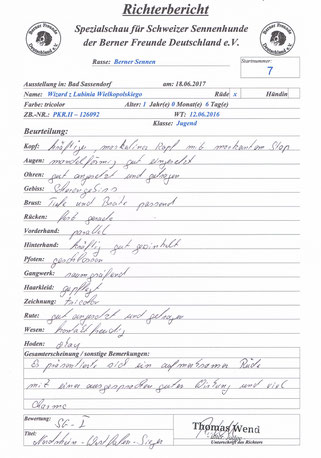 Richterbericht
Spezialschau für Schweizer Sennenhunde
der Berner Freunde Deutschland e.V.
Rasse: Berner Sennen
Startnummer:
7
Ausstellung in: Bad Sassendorf am: 18.06.2017
Name: Wizard z Lubinia Wielkopolskiego Rüde x Hündin
Farbe: tricolor Alter: 1 Jahr(e) 0 Monat(e) 6 Tag(e)
ZB.-NR.: PKR.II - 126092 WT: 12.06.2016
Klasse: Jugend
Beurteilung:
Kopf: kräftiger, maskuliner Kopf mit markantem Stop
Augen: mandelförmig gut eingesetzt
Ohren: gut angesetzt und getragen
Gebiss: Scherengebiss
Brust: Tiefe und Breite passend
Rücken: fest gerade
Vorderhand: parallel
Hinterhand: kräftig gut gewinkelt
Pfoten: geschlossen
Gangwerk: raumgreifend
Haarkleid: gepflegt
Zeichnung: tricolor
Rute: gut angesetzt und getragen
Wesen: kontaktfreudig
Hoden: okay
Gesamterscheinung / sonstige Bemerkungen:
Es präsentierte sich ein aufmerksamer Rüde
mit einer ausgesprochen guten Wirkung und viel
Charme
Bewertung: SG - I
Thomas Wend
Titel: Nordrhein-Westfalen-Sieger
Unterschrift des Richters